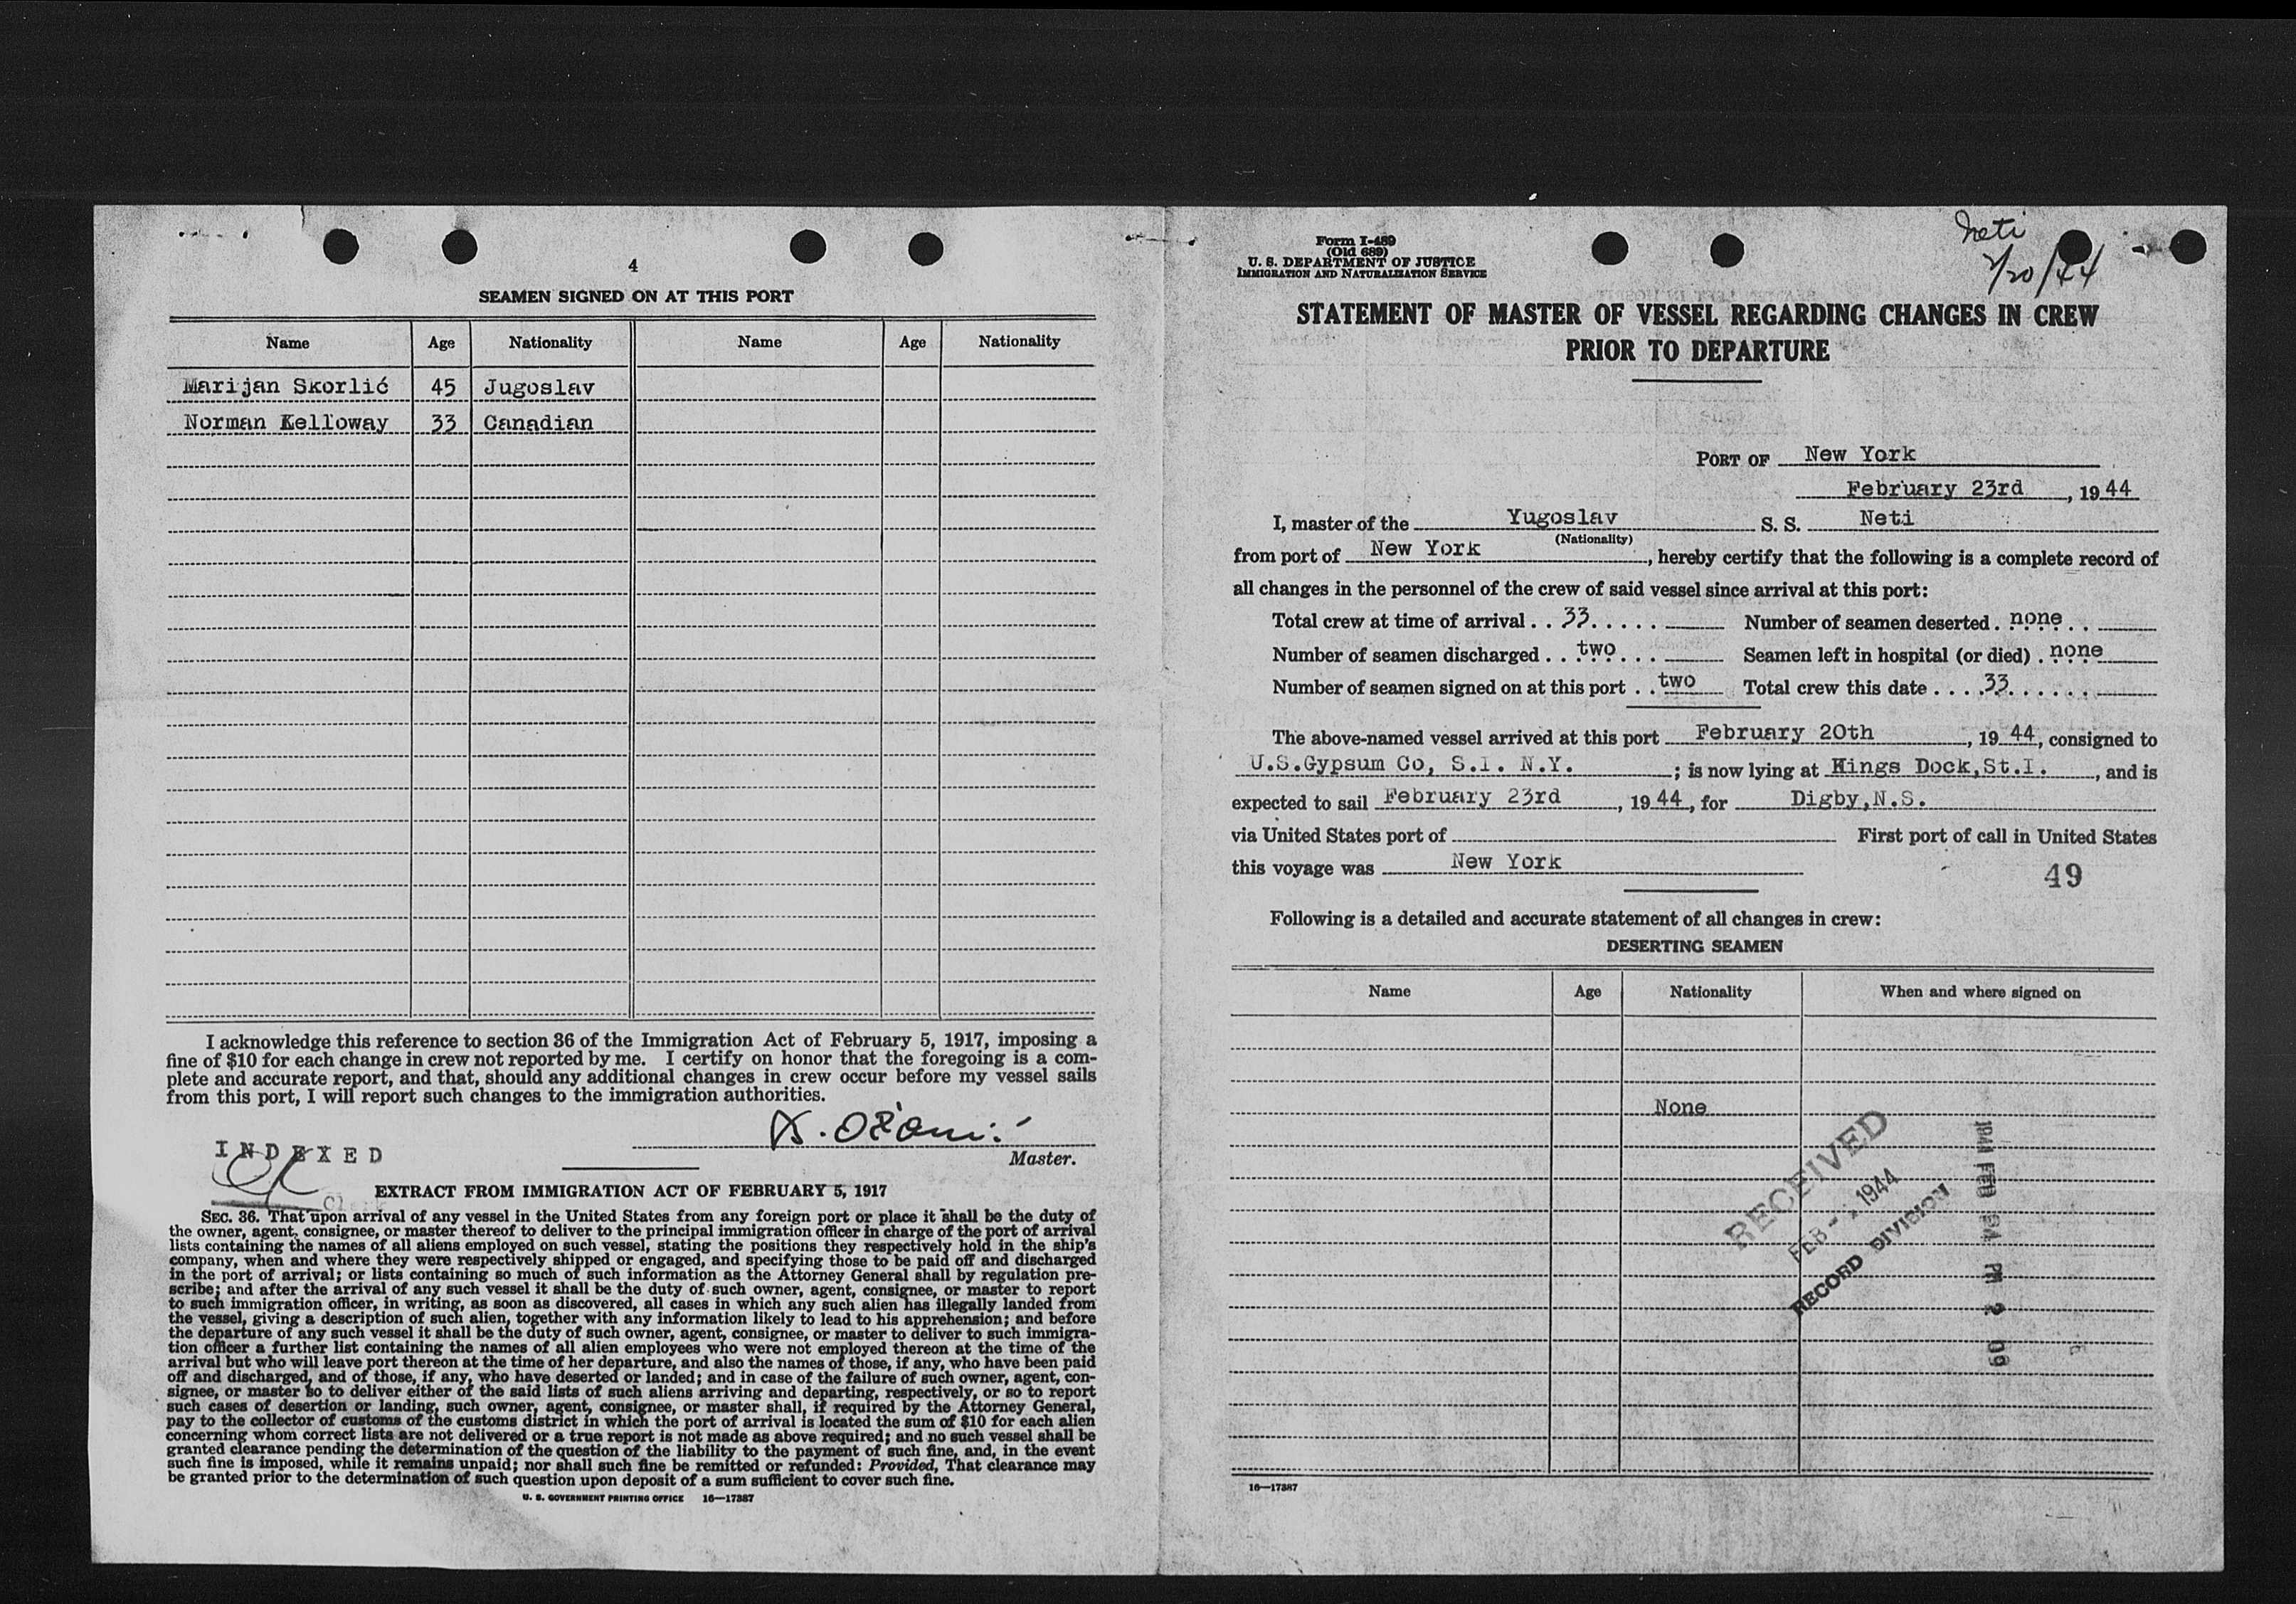 4
SEAMEN SIGNED ON AT THIS PORT
Name Age Nationality Name Age Nationality
Marijan Skorlić 45 Jugoslav
Norman Kelloway 33 Canadian
I acknowledge this reference to section 36 of the Immigration Act of February 5, 1917, imposing a
fine of $10 for each change in crew not reported by me. I certify on honor that the foregoing is a com-
plete and accurate report, and that, should any additional changes in crew occur before my vessel sails
from this port, I will report such changes to the immigration authorities.
Master.
INDEXED
EXTRACT FROM IMMIGRATION ACT OF FEBRUARY 5, 1917
SEC. 36. That upon arrival of any vessel in the United States from any foreign port or place it shall be the duty of
the owner, agent, consignee, or master thereof to deliver to the principal immigration officer in charge of the port of arrival
lists containing the names of all aliens employed on such vessel, stating the positions they respectively hold in the ship's
company, when and where they were respectively shipped or engaged, and specifying those to be paid off and discharged
in the port of arrival; or lists containing so much of such information as the Attorney General shall by regulation pre-
scribe; and after the arrival of any such vessel it shall be the duty of such owner, agent, consignee, or master to report
to such immigration officer, in writing, as soon as discovered, all cases in which any such alien has illegally landed from
the vessel, giving a description of such alien, together with any information likely to lead to his apprehension; and before
the departure of any such vessel it shall be the duty of such owner, agent, consignee, or master to deliver to such immigra-
tion officer a further list containing the names of all alien employees who were not employed thereon at the time of the
arrival but who will leave port thereon at the time of her departure, and also the names of those, if any, who have been paid
off and discharged, and of those, if any, who have deserted or landed; and in case of the failure of such owner, agent, con-
signee, or master so to deliver either of the said lists of such aliens arriving and departing, respectively, or so to report
such cases of desertion or landing, such owner, agent, consignee, or master shall, if required by the Attorney General,
pay to the collector of customs of the customs district in which the port of arrival is located the sum of $10 for each alien
concerning whom correct lists are not delivered or a true report is not made as above required; and no such vessel shall be
granted clearance pending the determination of the question of the liability to the payment of such fine, and, in the event
such fine is imposed, while it remains unpaid; nor shall such fine be remitted or refunded: Provided, That clearance may
be granted prior to the determination of such question upon deposit of a sum sufficient to cover such fine.
U. S. GOVERNMENT PRINTING OFFICE 16—17387
Neti
2/20/44
Form I-489
(Old 689)
U. S. DEPARTMENT OF JUSTICE
IMMIGRATION AND NATURALIZATION SERVICE
STATEMENT OF MASTER OF VESSEL REGARDING CHANGES IN CREW
PRIOR TO DEPARTURE
PORT OF New York
February 23rd, 1944
I, master of the Yugoslav S. S. Neti
(Nationality)
from port of New York, hereby certify that the following is a complete record of
all changes in the personnel of the crew of said vessel since arrival at this port:
Total crew at time of arrival . . 33 . . . . . Number of seamen deserted . none . .
Number of seamen discharged . . two . . . Seamen left in hospital (or died) . none
Number of seamen signed on at this port . . two Total crew this date . . . . 33 . . . . . .
The above-named vessel arrived at this port February 20th, 1944, consigned to
U.S.Gypsum Co, S.I. N.Y.; is now lying at Kings Dock,St.I., and is
expected to sail February 23rd, 1944, for Digby,N.S.
via United States port of First port of call in United States
this voyage was New York
49
Following is a detailed and accurate statement of all changes in crew:
DESERTING SEAMEN
Name Age Nationality When and where signed on
None
RECEIVED
FEB 1944
RECORD DIVISION
1944 FEB 24 PM 2 09
16—17387